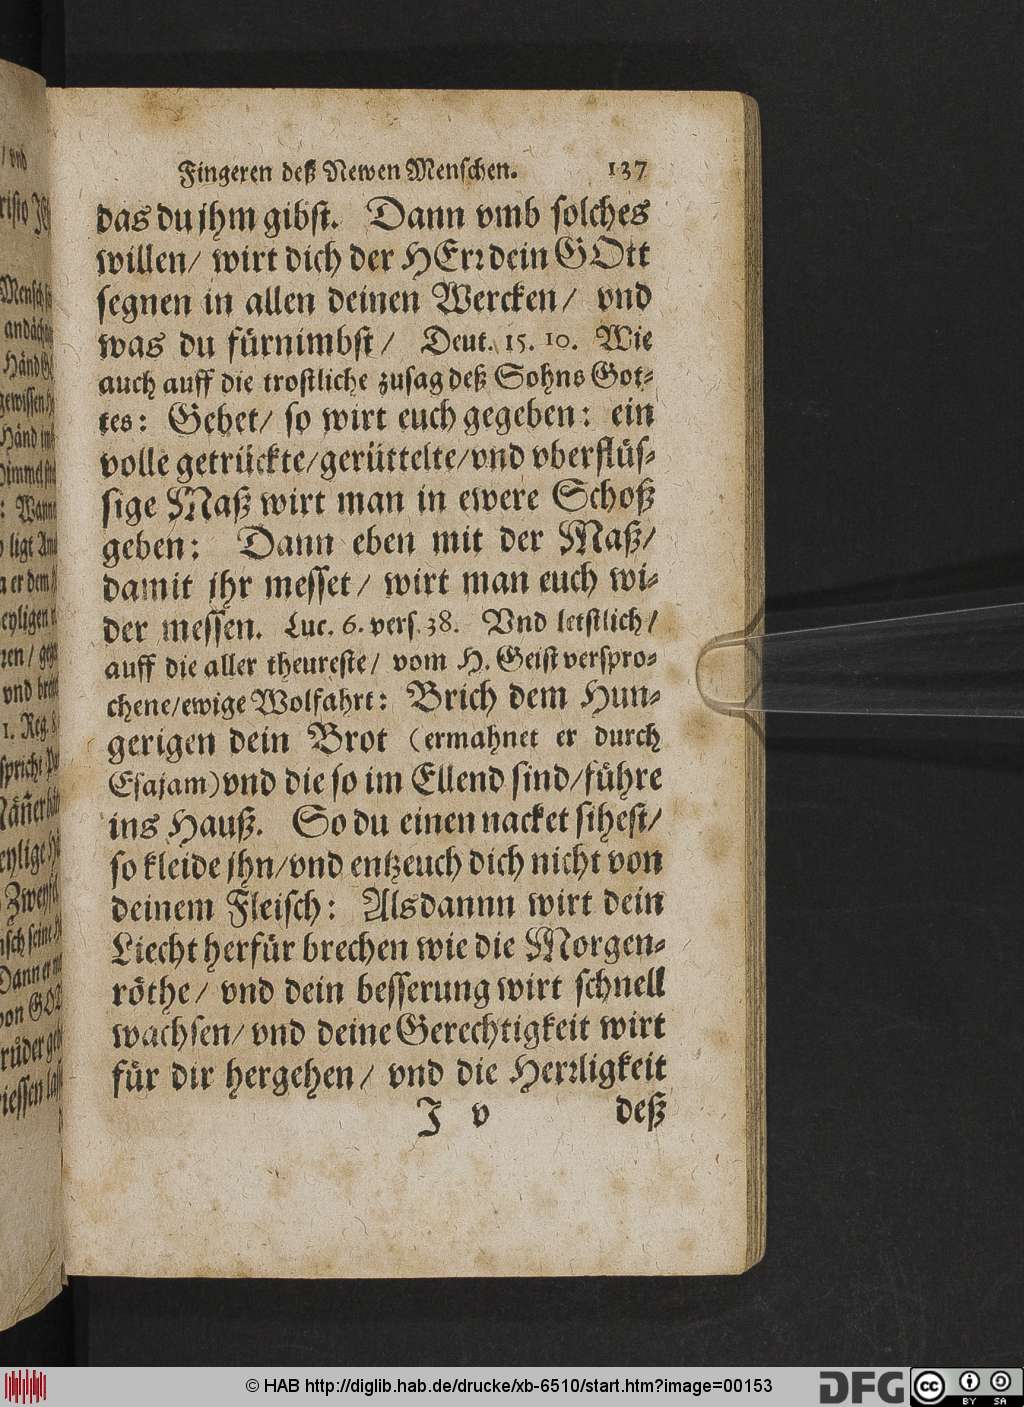 Fingeren deß Newen Menschen. 137
das du jhm gibst. Dann vmb solches
willen/ wirt dich der HErr dein GOtt
segnen in allen deinen Wercken/ vnd
was du fürnimbst/ Deut. 15. 10. Wie
auch auff die trostliche zusag deß Sohns Got-
tes: Gebet/ so wirt euch gegeben: ein
volle getrückte/gerüttelte/vnd vberflüs-
sige Maß wirt man in ewere Schoß
geben: Dann eben mit der Maß/
damit jhr messet/ wirt man euch wi-
der messen. Luc. 6. vers. 38. Vnd letstlich/
auff die aller theureste/ vom H. Geist verspro-
chene/ewige Wolfahrt: Brich dem Hun-
gerigen dein Brot (ermahnet er durch
Esajam) vnd die so im Ellend sind/führe
ins Hauß. So du einen nacket sihest/
so kleide jhn/vnd entzeuch dich nicht von
deinem Fleisch: Alsdannn wirt dein
Liecht herfür brechen wie die Morgen-
röthe/ vnd dein besserung wirt schnell
wachsen/ vnd deine Gerechtigkeit wirt
für dir hergehen/ vnd die Herrligkeit
J v deß
/ vnd
Mensch
andäch
Händ
gewissen
Händ
: Wann
ligt
er dem
eyligen
1. Reg.
Dann er
von GO
iessen
© HAB http://diglib.hab.de/drucke/xb-6510/start.htm?image=00153
DFG
cc BY SA